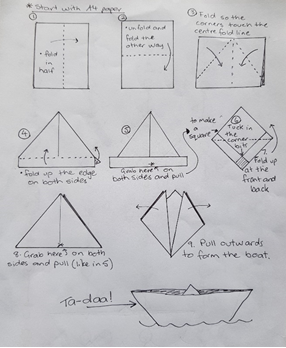 * Start with A4 paper
①
• fold
in
half
②
• unfold and
fold the
other way.
③ Fold so the
corners touch the
centre fold line
④
• fold up the edge
on both sides
⑤
Grab here ↑ on
both sides and pull
to make
a square
⑥
Tuck in
the
corner
bits
7.
Fold up
at the
front and
back
8. Grab here ↑ on both
sides and pull (like in 5)
9. Pull outwards
to form the boat.
Ta-daa!